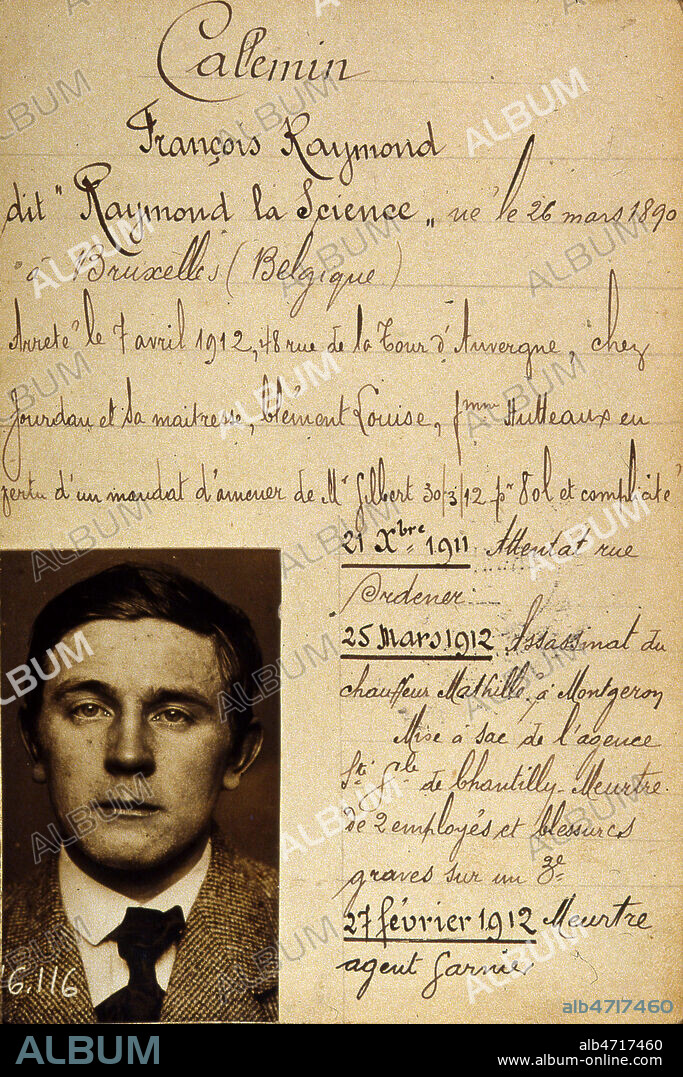 Callemin
François Raymond
dit "Raymond la Science„ né le 26 mars 1890
à Bruxelles (Belgique)
Arrêté le 7 avril 1912, 48 rue de la Tour d'Auvergne, chez
Jourdan et sa maitresse, Clément Louise, fmme Hutteaux en
vertu d'un mandat d'amener de Mr Gilbert 30/3/12 pr Vol et complicité
21 Xbre 1911 Attentat rue
Ordener
25 Mars 1912 Assassinat du
chauffeur Mathillé, à Montgeron
Mise à sac de l'agence
Sté Gle de Chantilly - Meurtre
de 2 employés et blessures
graves sur un 3e
27 février 1912 Meurtre
agent Garnier
6.116
alb4717460
ALBUM
alb4717460
www.album-online.com